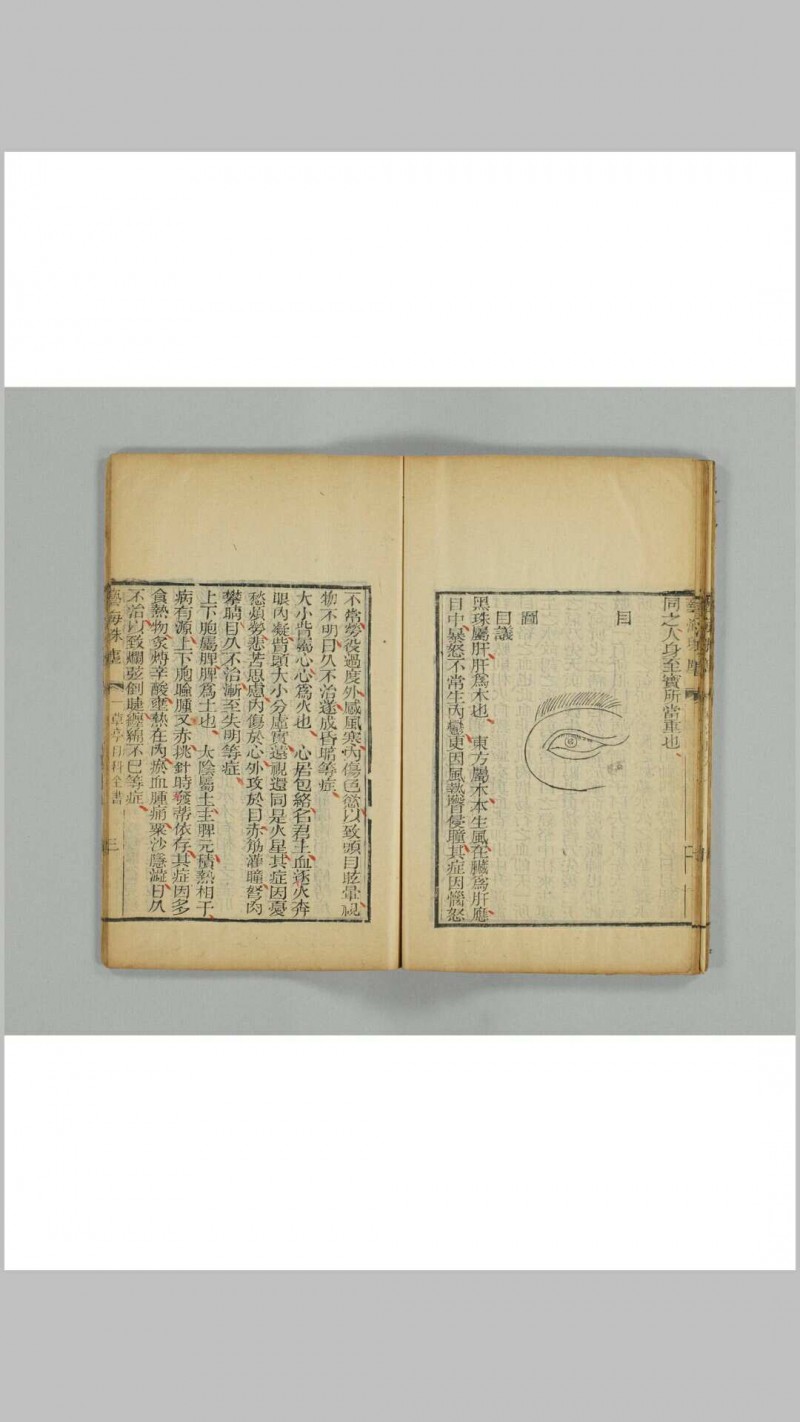 同之人身至寶所當重也
目
圖
目議
黑珠屬肝肝為木也 東方屬木木生風在臟為肝應
目中暴怒不常生內鬱更因風熱腎侵瞳其症因惱怒
不常勞役過度外感風寒內傷色慾以致頭目眩暈視
物不明日久不治遂成昏瞎等症
大小眥屬心心為火也 心居包絡名君主血逐火奔
眼內凝眥頭大小分虛實遠視還同是火星其症因憂
愁煩勞悲苦思慮內傷於心外攻於目赤筋灌瞳胬肉
攀睛日久不治漸至失明等症
上下胞屬脾脾為土也 太陰屬土主脾元積熱相干
病有源上下胞瞼腫又赤挑針時發蒂依存其症因多
食熱物炙煿辛酸壅熱在內瘀血腫痛粟沙隱澁日久
不治以致爛弦劍睫纏綿不巳等症
藝海珠塵 一草亭目科全書 三